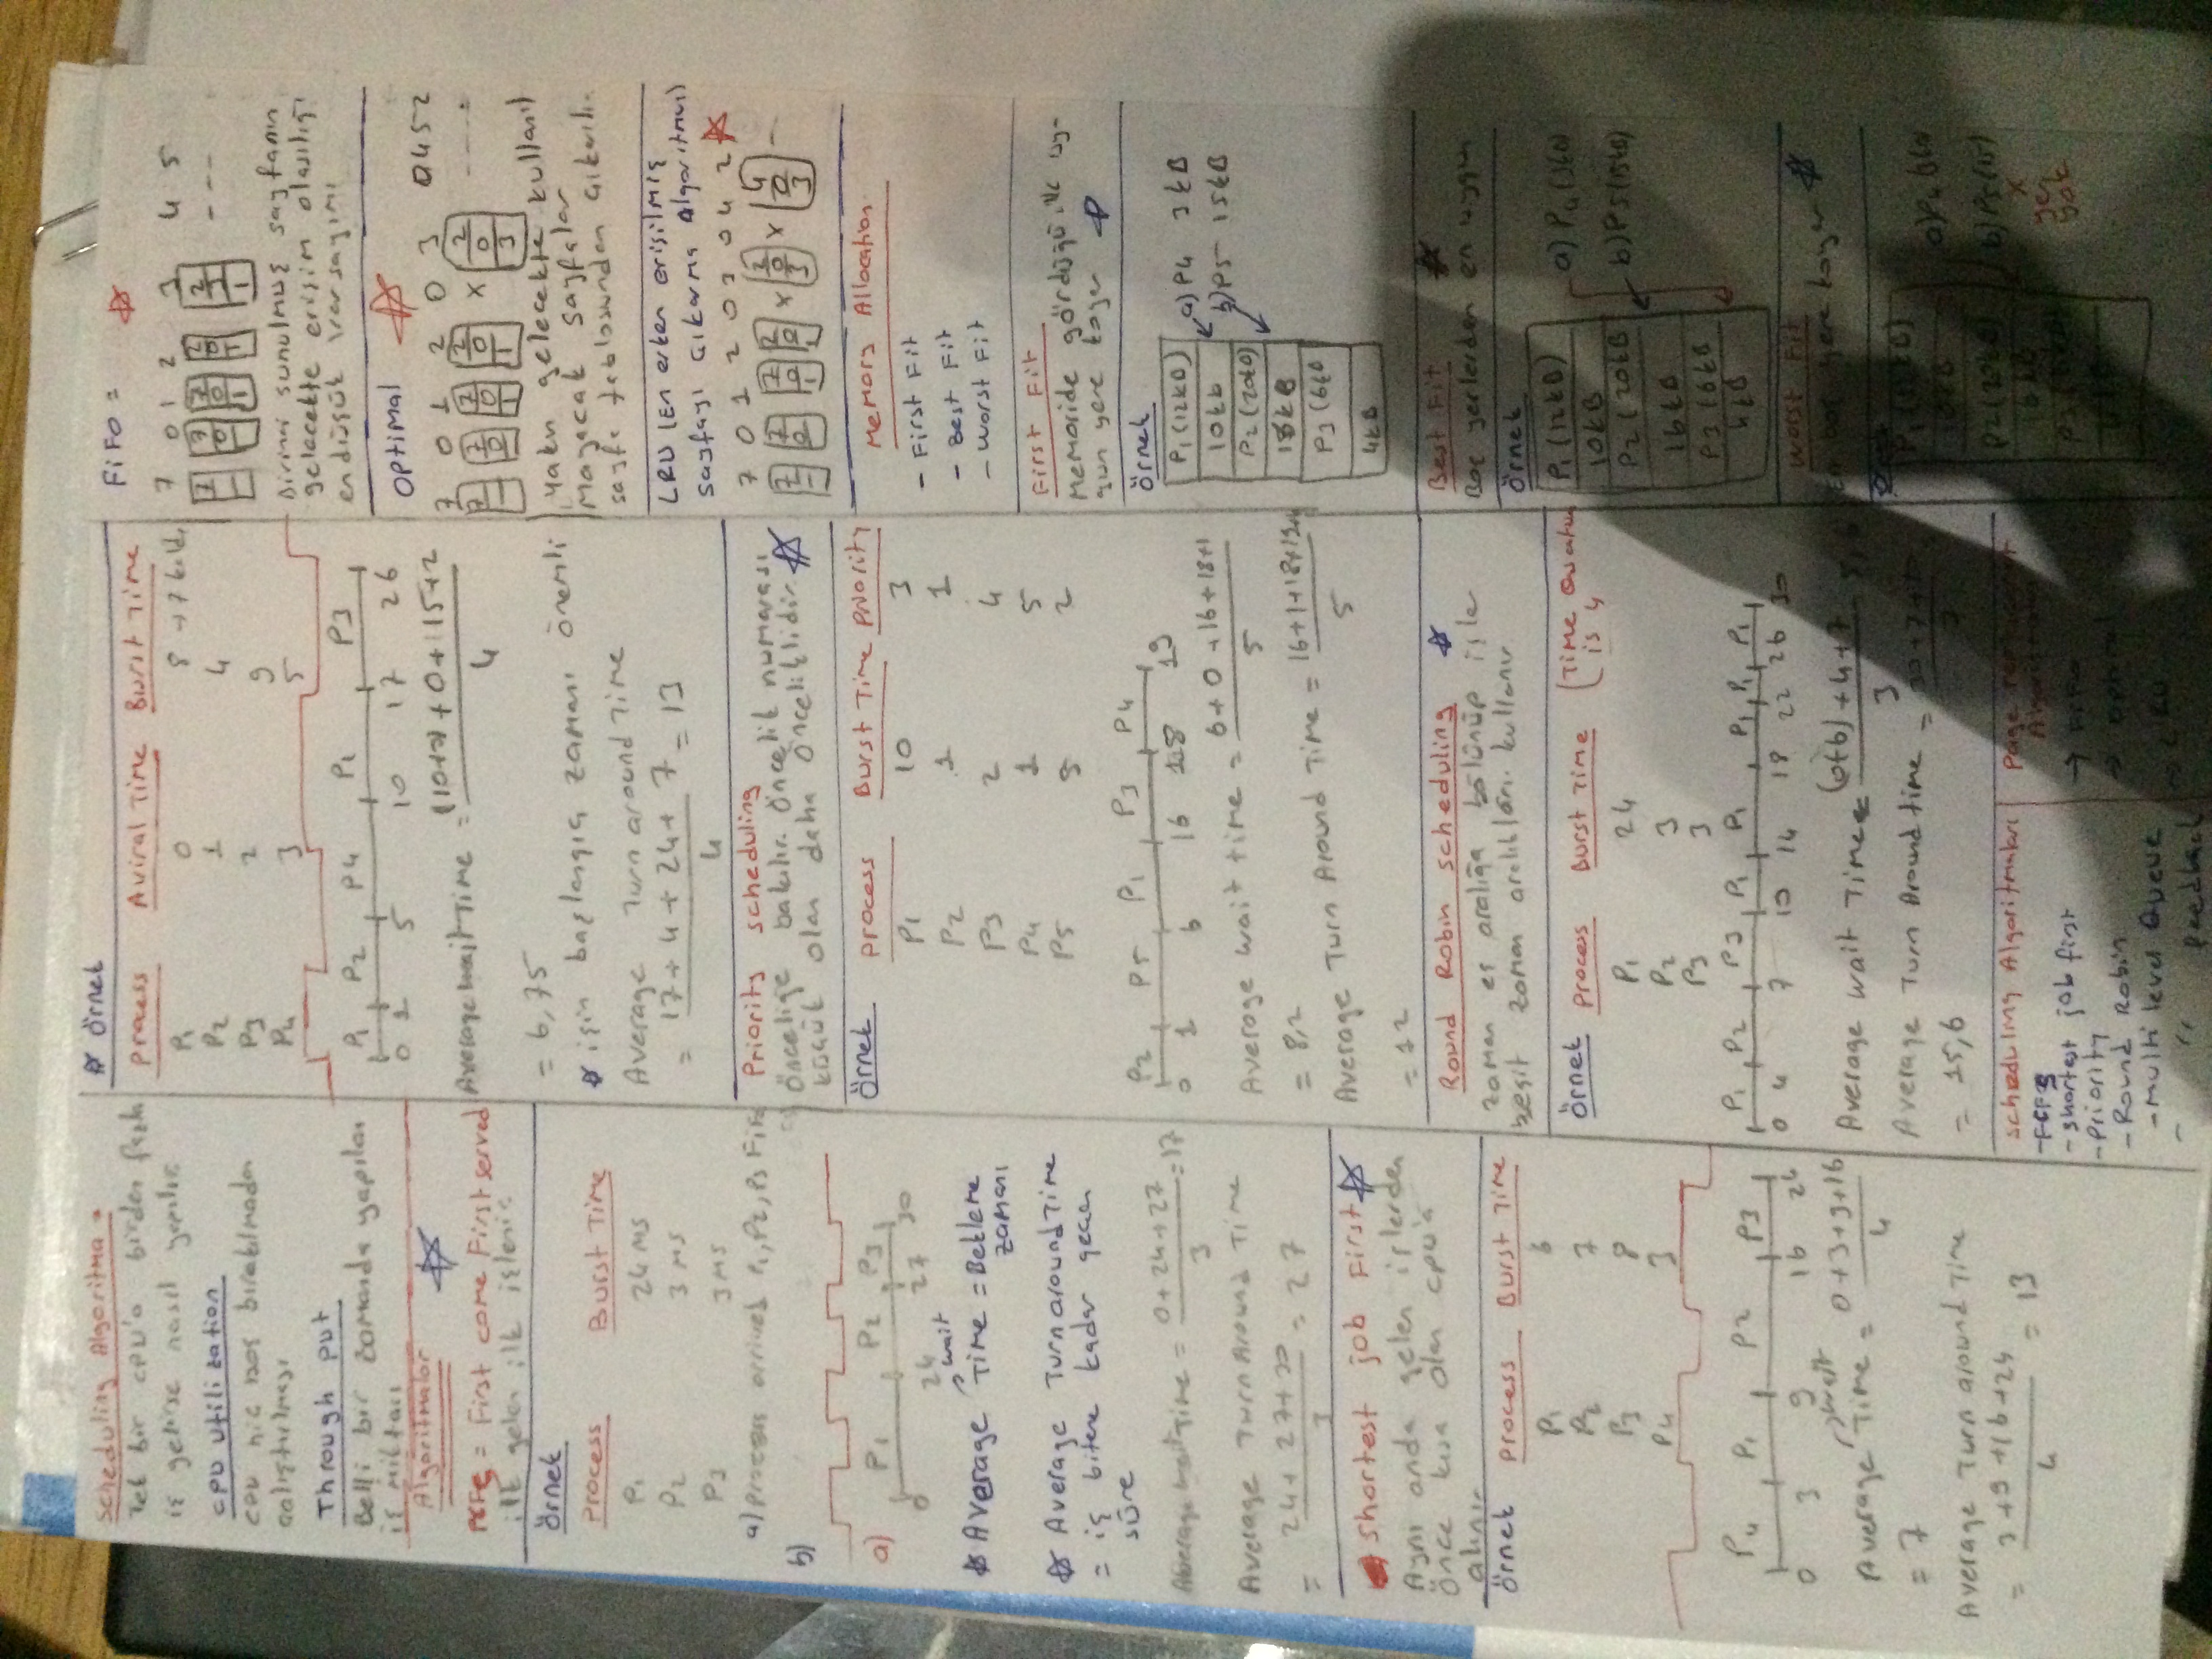 Scheduling Algoritma =
Tek bir cpu'a birden fazla
iş gelirse nasıl yapılır
CPU utilization
CPU hiç boş bırakılmadan
çalıştırılması
Through put
Belli bir zamanda yapılan
iş miktarı
Algoritmalar
FCFS = First come First served
ilk gelen ilk işlenir
örnek
Process Burst Time
P1 24 ms
P2 3 ms
P3 3 ms
a) process arrived P1, P2, P3
b)
a) P1 P2 P3
0 24 27 30
wait
Average Time = Bekleme
zamanı
Average Turnaround Time
= iş bitene kadar geçen
süre
Average wait Time = 0+24+27 = 17
3
Average Turn Around Time
= 24+27+30 = 27
3
Shortest job First
Aynı anda gelen işlerden
önce kısa olan cpu'a
alınır
örnek Process Burst Time
P1 6
P2 7
P3 8
P4 3
P4 P1 P2 P3
0 3 9 16 24
wait
Average Time = 0+3+9+16
4
= 7
Average Turn around Time
= 3+9+16+24 = 13
4
örnek
Process Aviral Time Burst Time
P1 0 8 → 7 kaldı
P2 1 4
P3 2 9
P4 3 5
P1 P2 P4 P1 P3
0 1 5 10 17 26
Average wait Time = + 0 + 15+2
4
= 6,75
işin başlangıç zamanı önemli
Average Turn around Time
= 17+4+24+7 = 13
4
Priority scheduling
Önceliğe bakılır. Öncelik numarası
küçük olan daha önceliklidir.
örnek Process Burst Time Priority
P1 10 3
P2 1 1
P3 2 4
P4 1 5
P5 5 2
P2 P5 P1 P3 P4
0 1 6 16 18 19
Average wait time = 6+0+16+18+1
5
= 8,2
Average Turn Around Time = 16+1+18+19+
5
= 12
Round Robin scheduling
zaman eş aralığa bölünüp işler
eşit zaman aralıkları kullanır
örnek Process Burst Time (Time Quantum
is 4
P1 24
P2 3
P3 3
P1 P2 P3 P1 P1 P1 P1 P1
0 4 7 10 14 18 22 26 30
Average wait Time = (0+6)+4+7
3
Average Turn Around time = 30+7+10
3
= 15,6
scheduling Algoritmaları
-FCFS
-shortest job first
-Priority
-Round Robin
-Multi level Queue
- " feedback
Page replacement
Algoritmaları
→ FIFO
→ optimal
→ LRU
FiFo =
7 0 1 2 3 4 5
7 7 0 7 0 1 2 0 1 2 3 1 - - -
Birinci sunulmuş sayfanın
gelecekte erişim olasılığı
en düşük varsayımı
Optimal
7 0 1 2 0 3 0 4 5 2
7 7 0 7 0 1 2 0 1 x 2 0 3 - - - -
yakın gelecekte kullanıl
mayacak sayfalar
sayfa tablosundan çıkarılır.
LRU (En erken erişilmiş
sayfayı çıkarma Algoritması)
7 0 1 2 0 3 0 4 2
7 7 0 7 0 1 2 0 1 x 2 0 3 x 4 0 3 -
Memory Allocation
- First Fit
- Best Fit
- Worst Fit
First Fit
Memoride gördüğü ilk uy-
gun yere koyar
örnek
P1 (12kB)
10kb
P2 (20kB)
18kB
P3 (6kB
4kB
a) P4 3 kB
b) P5 15kB
Best Fit
Boş yerlerden en uygun
örnek
P1 (12kB)
10kB
P2 (20kB
16kB
P3 (6kB
4kB
a) P4 (3kB)
b) P5 (15kB)
Worst Fit
En boş yere koyar
10kB
P2 (20kB)
b) P5 (15)
x
yer
yok